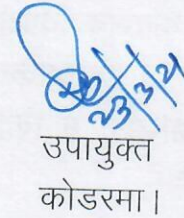 23/3/21
उपायुक्त
कोडरमा।